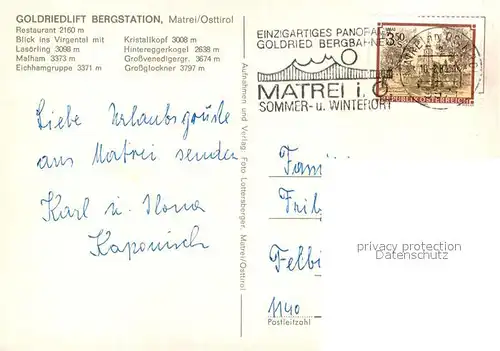 GOLDRIEDLIFT BERGSTATION, Matrei/Osttirol
Restaurant 2160 m
Blick ins Virgental mit Kristallkopf 3008 m
Lasörling 3098 m Hintereggerkogel 2638 m
Malham 3373 m Großvenedigergr. 3674 m
Eichhamgruppe 3371 m Großglockner 3797 m
EINZIGARTIGES PANORA
GOLDRIED BERGBAHNE
MATREI i. O
SOMMER- u. WINTERORT
3.50
REPUBLIK ÖSTERREICH
Liebe Urlaubsgrüße
aus Matrei senden
Karl u. Ilona
Kaponisch
Aufnahmen und Verlag: Foto Lottersberger, Matrei/Osttirol
Fami
Frib
Felbi
1140
Postleitzahl
privacy protection